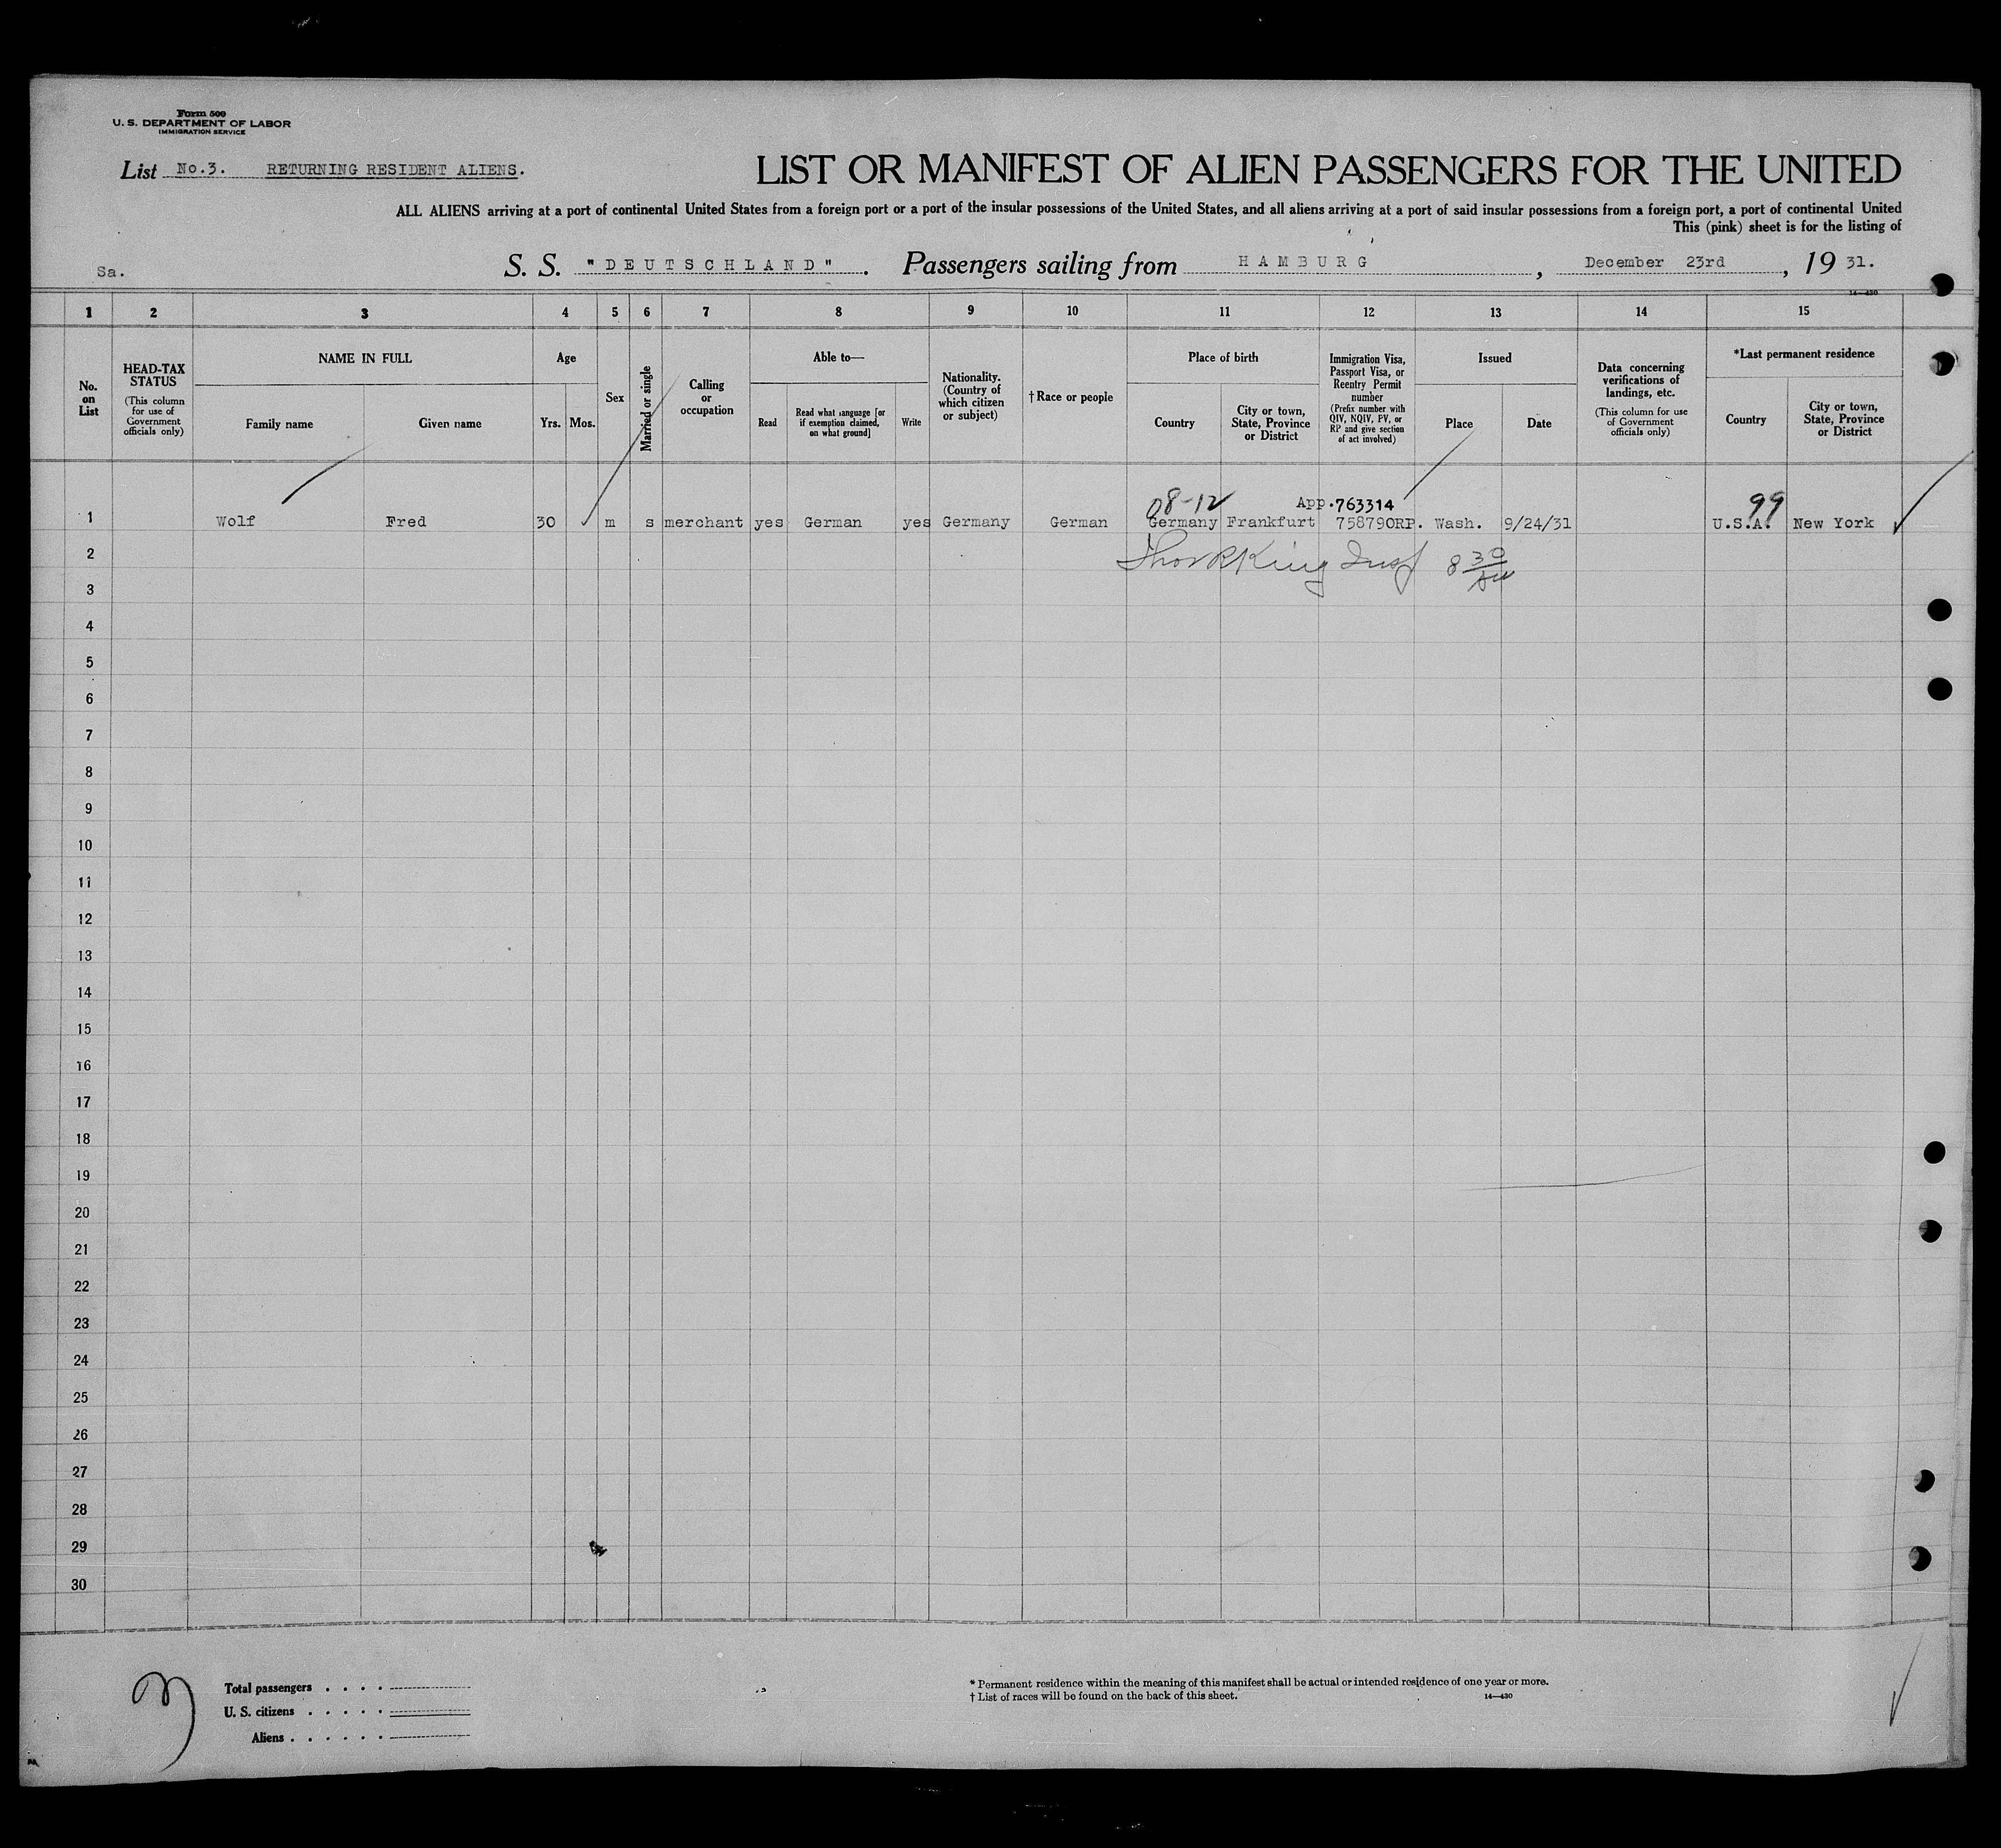 Form 500
U. S. DEPARTMENT OF LABOR
IMMIGRATION SERVICE
List No.3. RETURNING RESIDENT ALIENS.
LIST OR MANIFEST OF ALIEN PASSENGERS FOR THE UNITED
ALL ALIENS arriving at a port of continental United States from a foreign port or a port of the insular possessions of the United States, and all aliens arriving at a port of said insular possessions from a foreign port, a port of continental United
This (pink) sheet is for the listing of
Sa.
S. S. "DEUTSCHLAND". Passengers sailing from HAMBURG, December 23rd, 19 31.
14—430
1 2 3 4 5 6 7 8 9 10 11 12 13 14 15
No. on List
HEAD-TAX STATUS
(This column for use of Government officials only)
NAME IN FULL
Family name
Given name
Age
Yrs.
Mos.
Sex
Married or single
Calling or occupation
Able to—
Read
Read what language [or if exemption claimed, on what ground]
Write
Nationality. (Country of which citizen or subject)
† Race or people
Place of birth
Country
City or town, State, Province or District
Immigration Visa, Passport Visa, or Reentry Permit number
(Prefix number with QIV, NQIV, PV, or RP and give section of act involved)
Issued
Place
Date
Data concerning verifications of landings, etc.
(This column for use of Government officials only)
*Last permanent residence
Country
City or town, State, Province or District
08-12 App.763314 99
1 Wolf Fred 30 m s merchant yes German yes Germany German Germany Frankfurt 758790RP. Wash. 9/24/31 U.S.A. New York
2 King Insp 8 30
3
4
5
6
7
8
9
10
11
12
13
14
15
16
17
18
19
20
21
22
23
24
25
26
27
28
29
30
3
Total passengers . . . .
U. S. citizens . . . . .
Aliens . . . . . .
* Permanent residence within the meaning of this manifest shall be actual or intended residence of one year or more.
† List of races will be found on the back of this sheet.
14—430